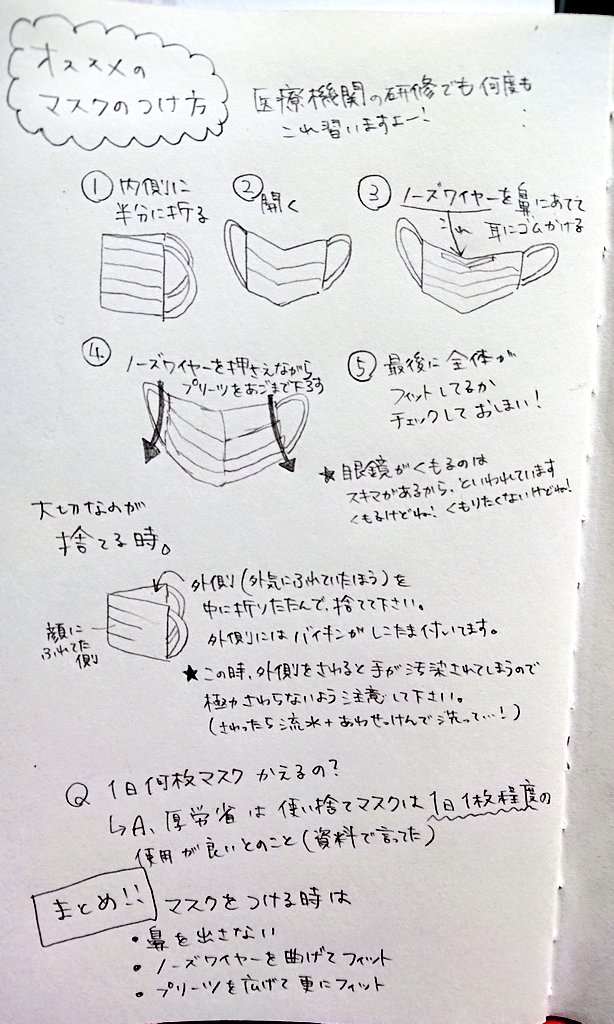 オススメの
マスクのつけ方
医療機関の研修でも何度も
これ習いますよー!
① 内側に
半分に折る
② 開く
③ ノーズワイヤーを鼻にあてて
耳にゴムかける
これ
④ ノーズワイヤーを押さえながら
プリーツをあごまで下ろす
⑤ 最後に全体が
フィットしてるか
チェックしておしまい!
★眼鏡がくもるのは
スキマがあるから、といわれています
くもるけどね! くもりたくないけどね!
大切なのが
捨てる時。
外側(外気にふれていたほう)を
中に折りたたんで、捨てて下さい。
外側にはバイキンがしこたま付いてます。
顔に
ふれてた
側
★この時、外側をさわると手が汚染されてしまうので
極力さわらないよう注意して下さい。
(さわったら流水+あわせっけんで洗って…!)
Q 1日何枚マスクかえるの?
↳A、厚労省は使い捨てマスクは1日1枚程度の
使用が良いとのこと(資料で言ってた)
まとめ!! マスクをつける時は
・鼻を出さない
・ノーズワイヤーを曲げてフィット
・プリーツを広げて更にフィット